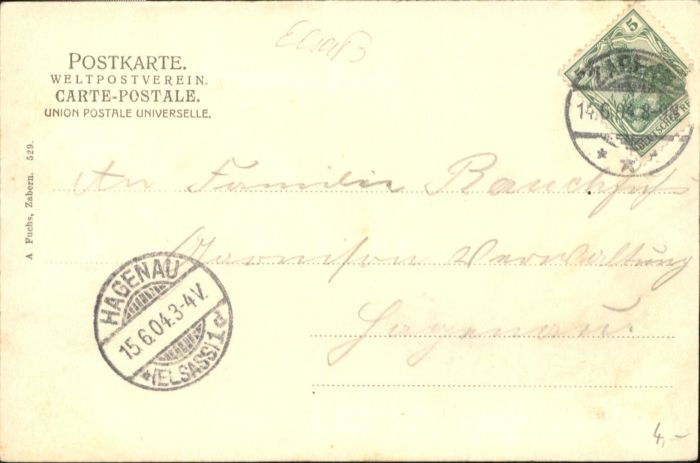 Elsaß
POSTKARTE.
WELTPOSTVEREIN.
CARTE-POSTALE.
UNION POSTALE UNIVERSELLE.
5
ZABERN
15.6.04.8-9
DEUTSCHES R
A Fuchs, Zabern. 529.
An Familie Rauchfuß
Garnison Verwaltung
Hagenau.
HAGENAU
15.6.04.3-4V.
*(ELSASS)1d
4,-